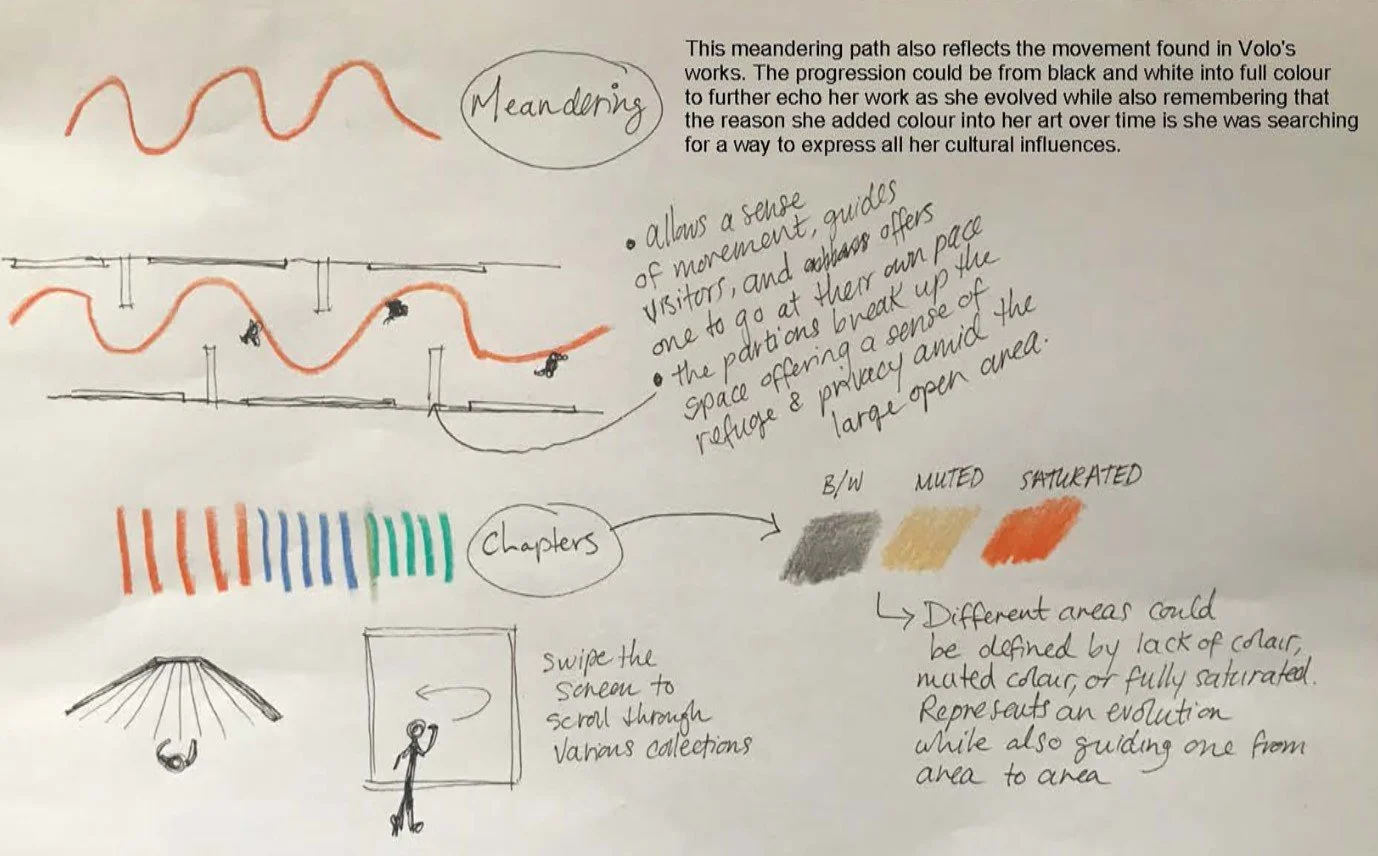 This meandering path also reflects the movement found in Volo's
works. The progression could be from black and white into full colour
to further echo her work as she evolved while also remembering that
the reason she added colour into her art over time is she was searching
for a way to express all her cultural influences.
Meandering
• allows a sense
of movement, guides
visitors, and offers
one to go at their own pace
• the partions break up the
space offering a sense of
refuge & privacy amid the
large open area.
Chapters
B/W MUTED SATURATED
Different areas could
be defined by lack of colour,
muted colour, or fully saturated.
Represents an evolution
while also guiding one from
area to area
swipe the
screen to
scroll through
various collections